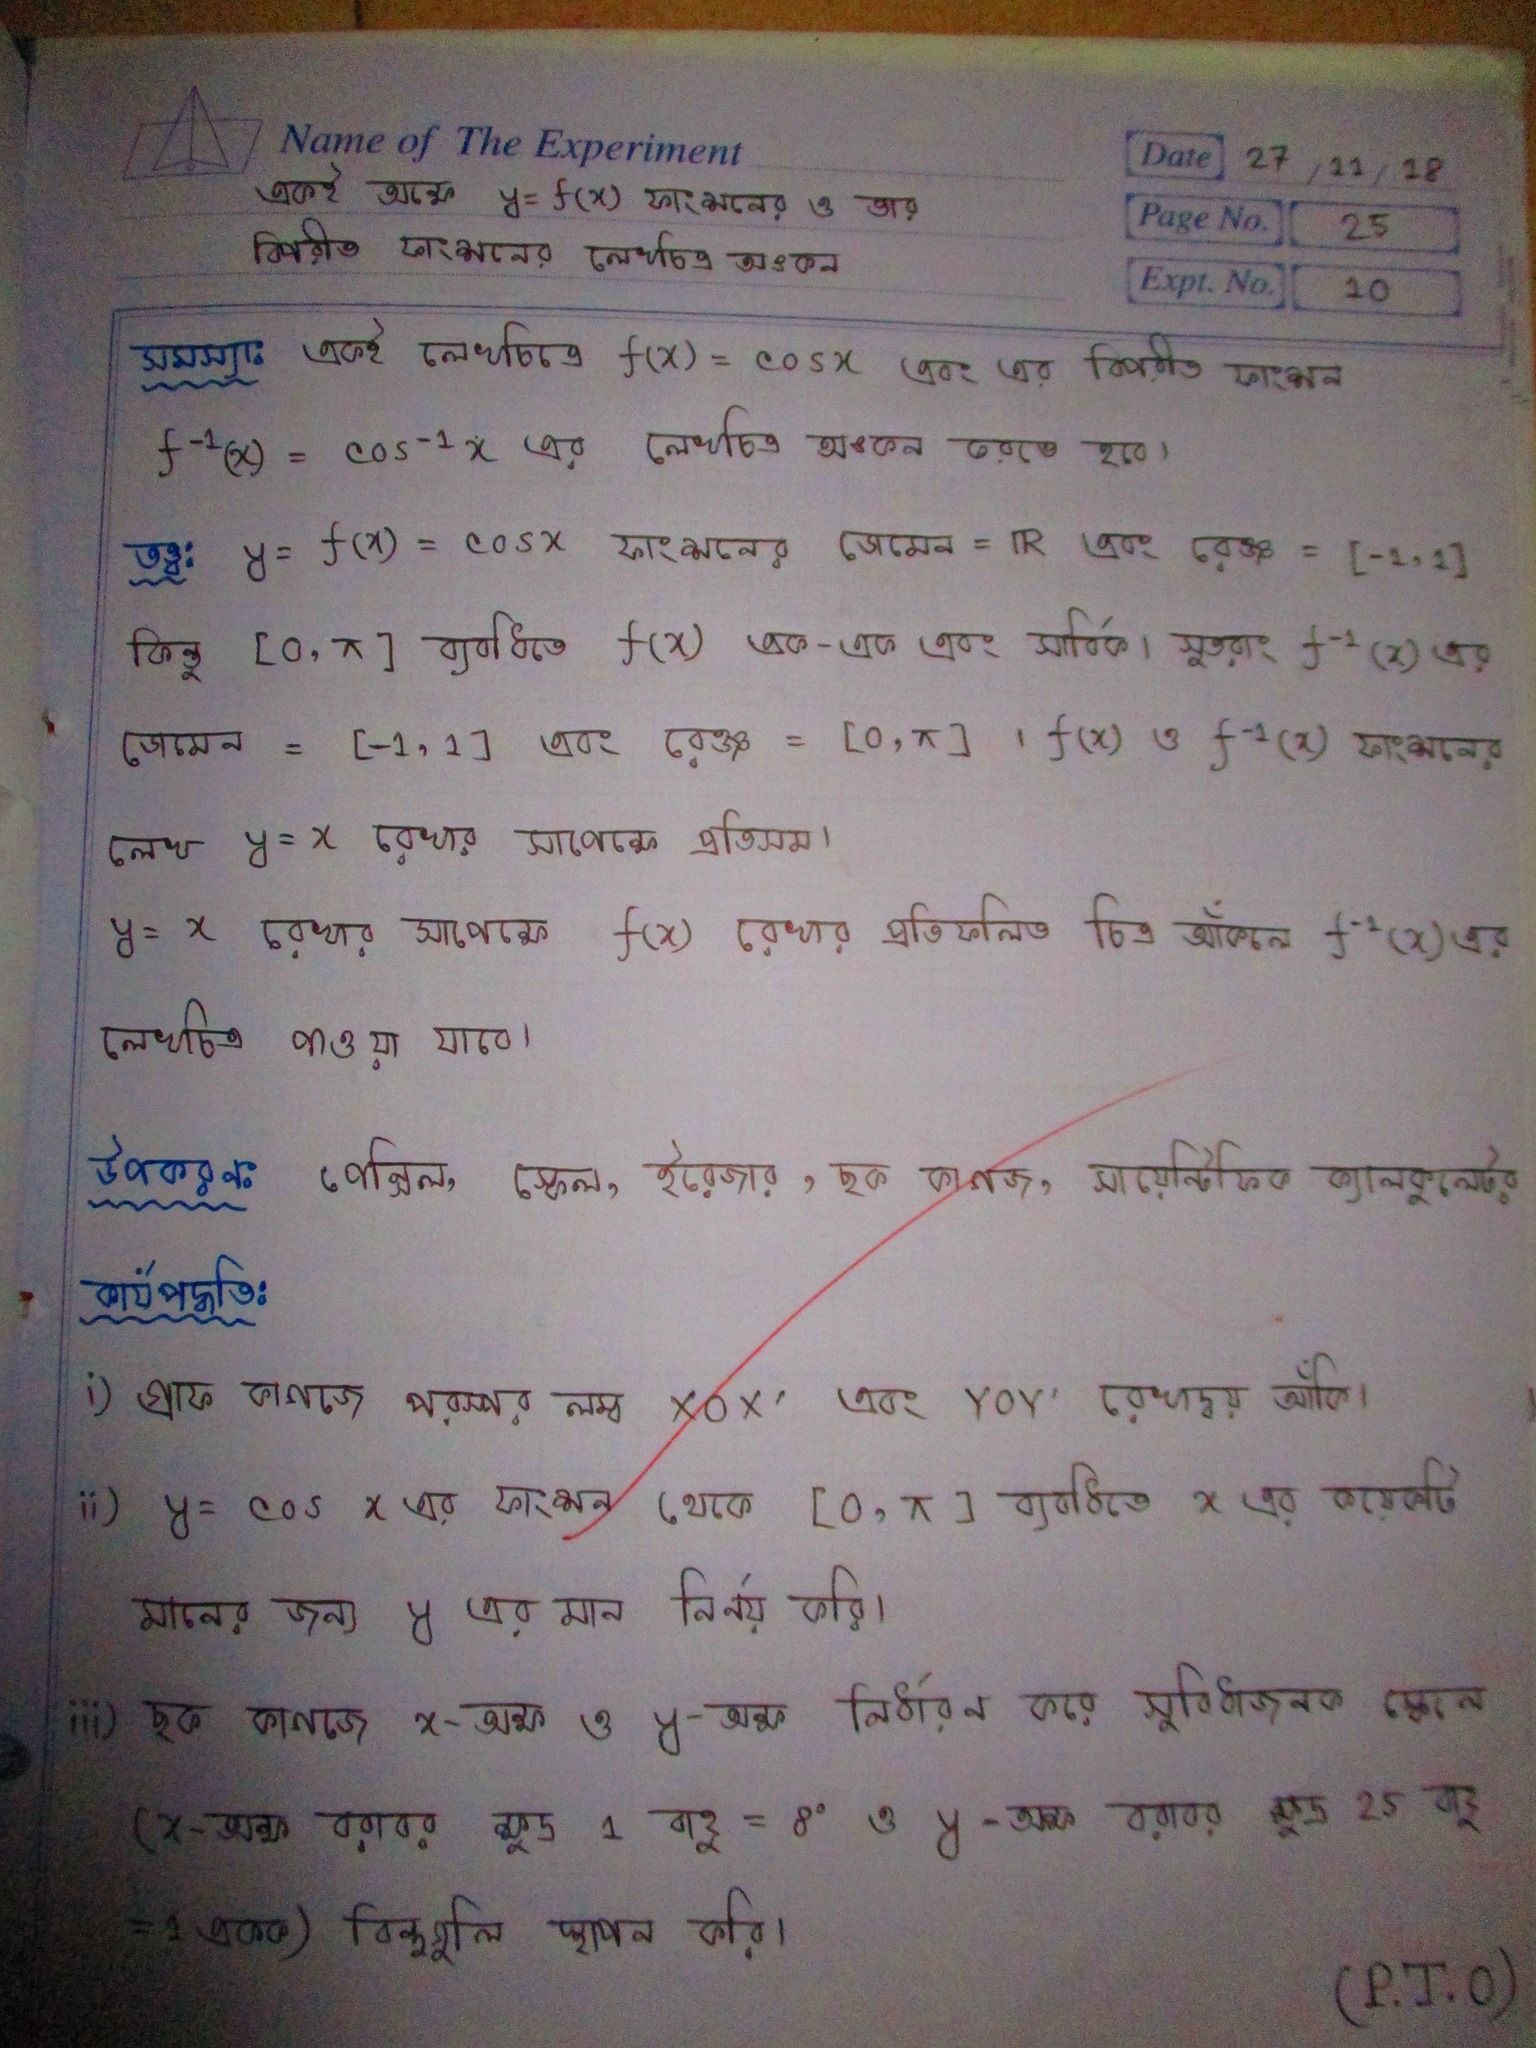 Name of The Experiment
Date 27/11/18
একই অক্ষে y = f(x) ফাংশনের ও তার
Page No. 25
বিপরীত ফাংশনের লেখচিত্র অংকন
Expt. No. 10
সমস্যাঃ একই লেখচিত্রে f(x) = cosx এবং এর বিপরীত ফাংশন
f⁻¹(x) = cos⁻¹x এর লেখচিত্র অংকন করতে হবে।
তত্ত্বঃ y = f(x) = cosx ফাংশনের ডোমেন = IR এবং রেঞ্জ = [-1, 1]
কিন্তু [0, π] ব্যবধিতে f(x) এক-এক এবং সার্বিক। সুতরাং f⁻¹(x) এর
ডোমেন = [-1, 1] এবং রেঞ্জ = [0, π] । f(x) ও f⁻¹(x) ফাংশনের
লেখ y = x রেখার সাপেক্ষে প্রতিসম।
y = x রেখার সাপেক্ষে f(x) রেখার প্রতিফলিত চিত্র আঁকলে f⁻¹(x) এর
লেখচিত্র পাওয়া যাবে।
উপকরণঃ পেন্সিল, স্কেল, ইরেজার, ছক কাগজ, সায়েন্টিফিক ক্যালকুলেটর
কার্যপদ্ধতিঃ
i) গ্রাফ কাগজে পরস্পর লম্ব XOX' এবং YOY' রেখাদ্বয় আঁকি।
ii) y = cos x এর ফাংশন থেকে [0, π] ব্যবধিতে x এর কয়েকটি
মানের জন্য y এর মান নির্নয় করি।
iii) ছক কাগজে x-অক্ষ ও y-অক্ষ নির্ধারন করে সুবিধাজনক স্কেলে
(x-অক্ষ বরাবর ক্ষুদ্র 1 বাহু = 8° ও y-অক্ষ বরাবর ক্ষুদ্র 25 বাহু
= 1 একক) বিন্দুগুলি স্থাপন করি।
(P.T.O)